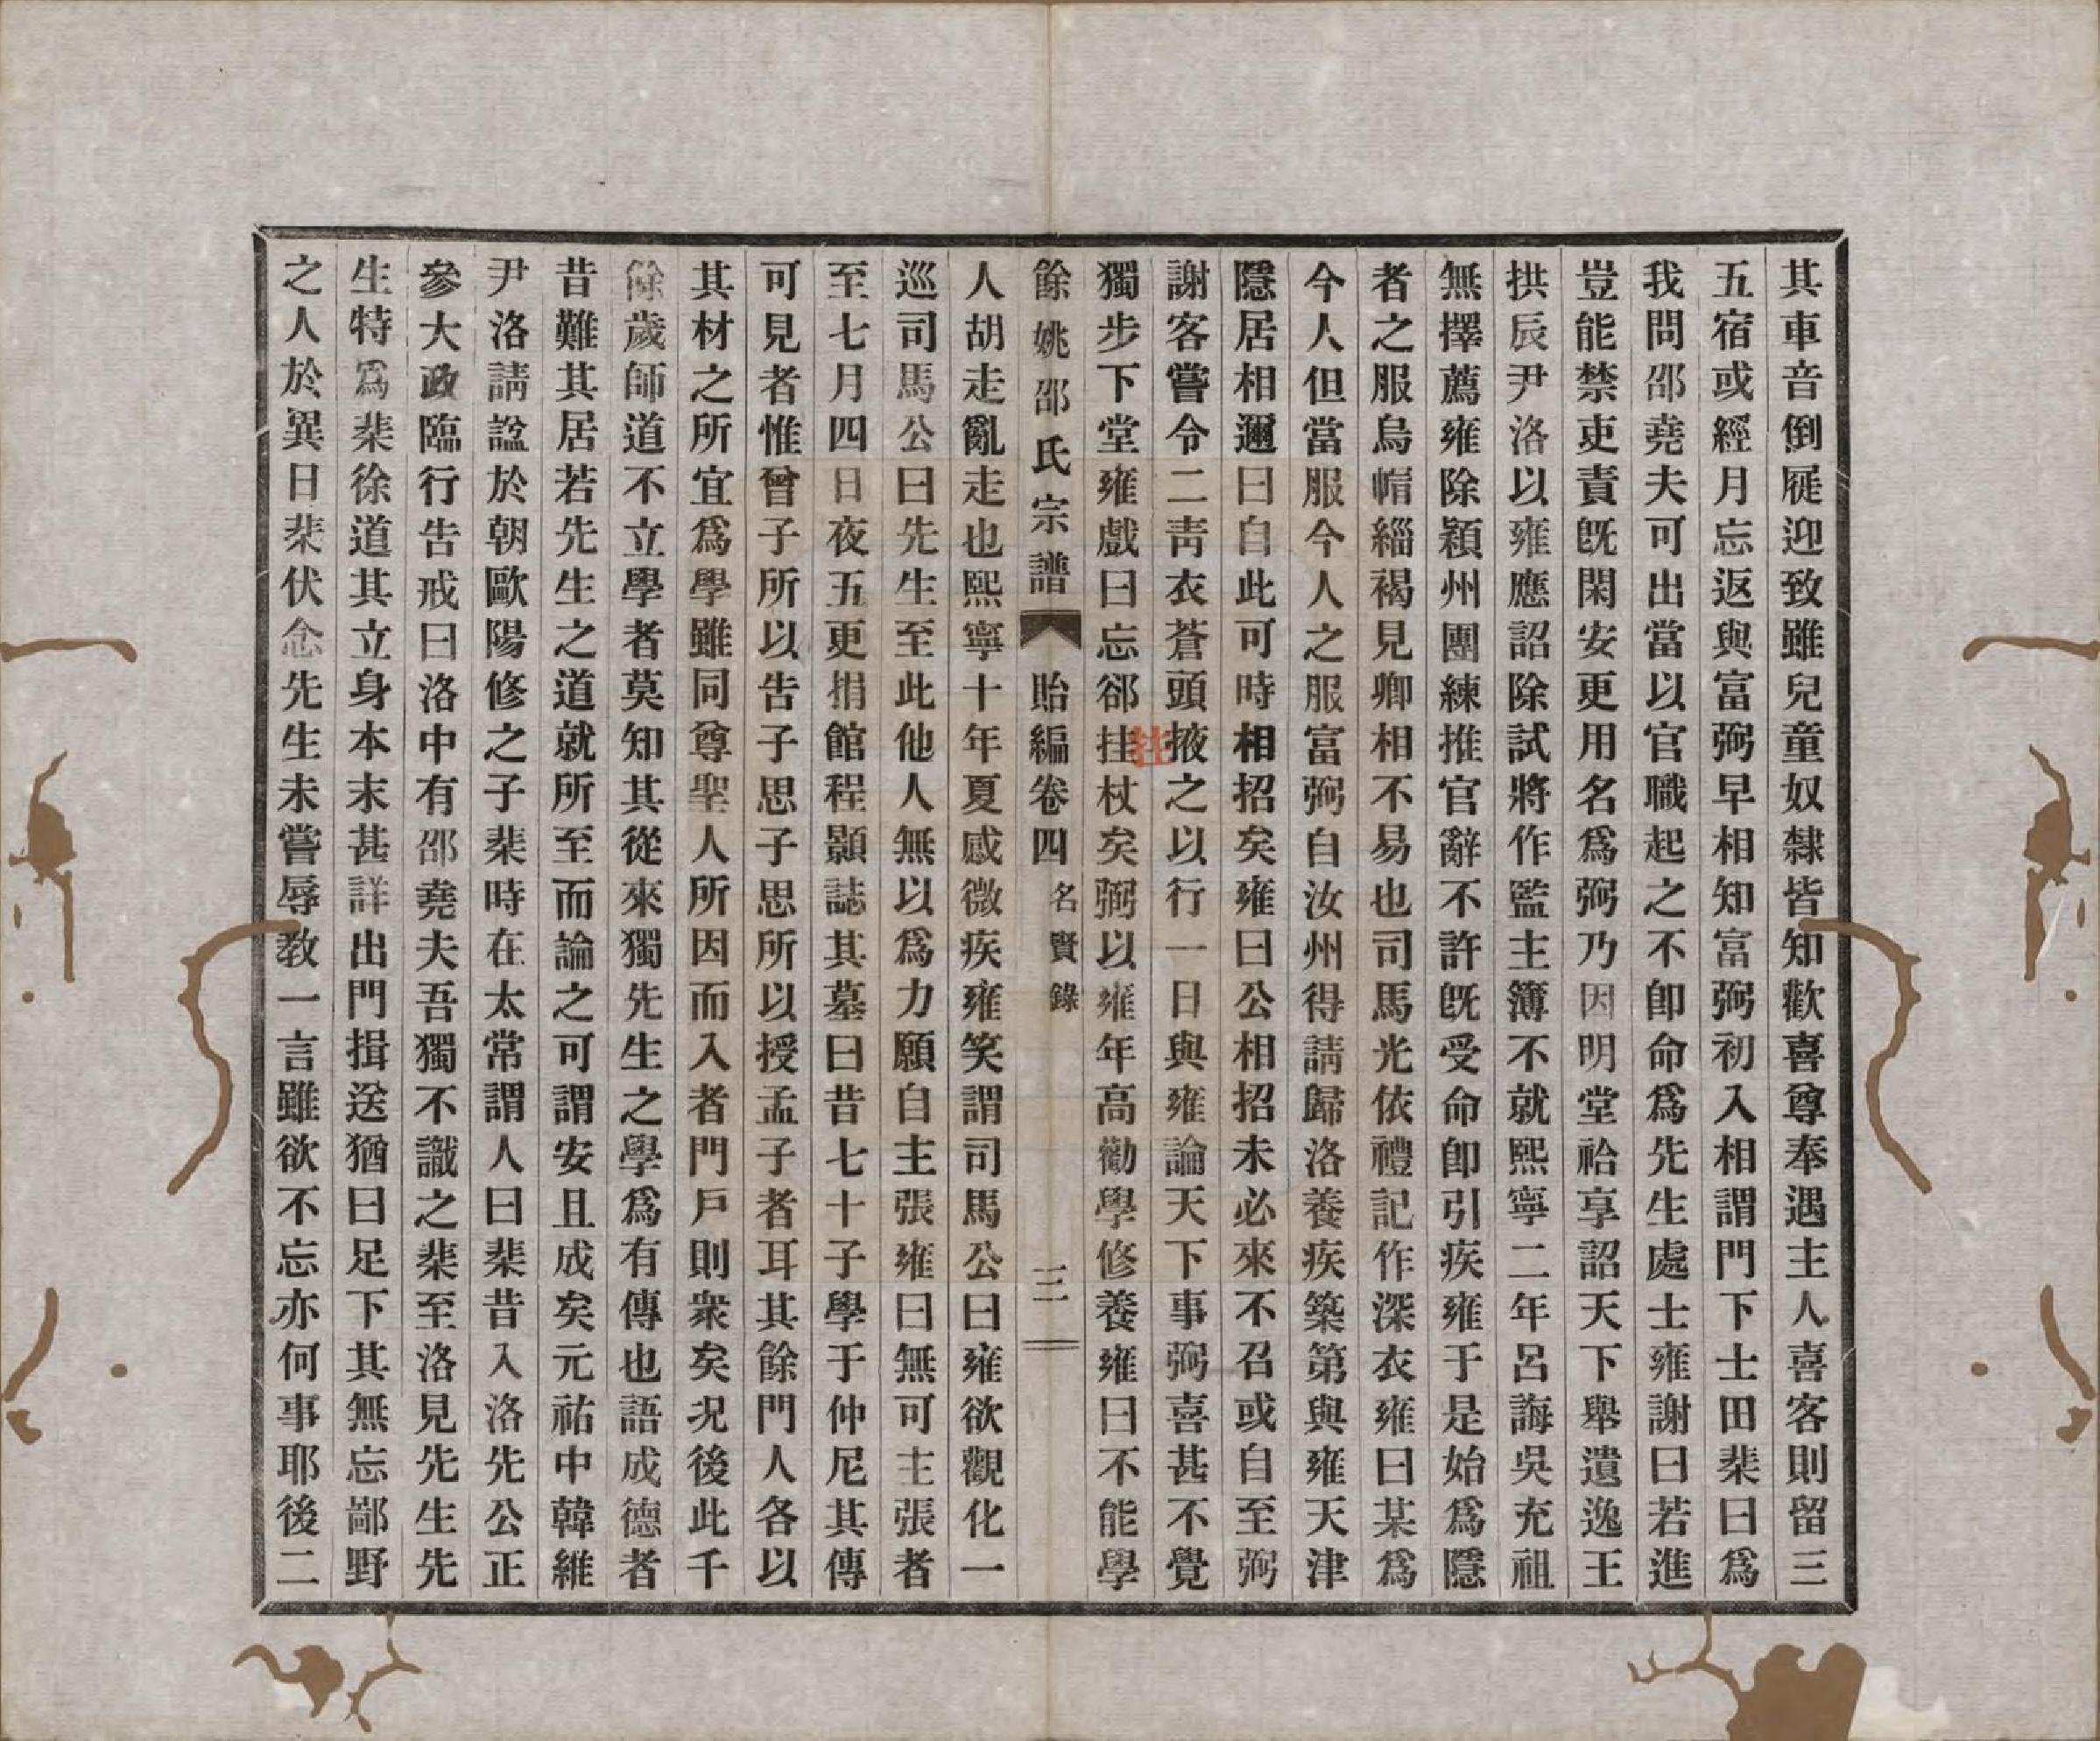 其車音倒屣迎致雖兒童奴隸皆知歡喜尊奉遇主人喜客則留三
五宿或經月忘返與富弼早相知富弼初入相謂門下士田棐曰爲
我問邵堯夫可出當以官職起之不卽命爲先生處士雍謝曰若進
豈能禁吏責旣閑安更用名爲弼乃因明堂祫享詔天下舉遺逸王
拱辰尹洛以雍應詔除試將作監主簿不就熙寧二年呂誨吳充祖
無擇薦雍除穎州團練推官辭不許旣受命卽引疾雍于是始爲隱
者之服烏帽緇褐見卿相不易也司馬光依禮記作深衣雍曰某爲
今人但當服今人之服富弼自汝州得請歸洛養疾築第與雍天津
隱居相邇曰自此可時相招矣雍曰公相招未必來不召或自至弼
謝客嘗令二靑衣蒼頭掖之以行一日與雍論天下事弼喜甚不覺
獨步下堂雍戲曰忘郤挂杖矣弼以雍年高勸學修養雍曰不能學
拄
餘姚邵氏宗譜 貽編卷四 名賢錄 三
人胡走亂走也熙寧十年夏感微疾雍笑謂司馬公曰雍欲觀化一
巡司馬公曰先生至此他人無以爲力願自主張雍曰無可主張者
至七月四日夜五更捐館程顥誌其墓曰昔七十子學于仲尼其傳
可見者惟曾子所以告子思子思所以授孟子者耳其餘門人各以
其材之所宜爲學雖同尊聖人所因而入者門戶則衆矣况後此千
餘歲師道不立學者莫知其從來獨先生之學爲有傳也語成德者
昔難其居若先生之道就所至而論之可謂安且成矣元祐中韓維
尹洛請諡於朝歐陽修之子棐時在太常謂人曰棐昔入洛先公正
參大政臨行告戒曰洛中有邵堯夫吾獨不識之棐至洛見先生先
生特爲棐徐道其立身本末甚詳出門揖送猶曰足下其無忘鄙野
之人於異日棐伏念先生未嘗辱教一言雖欲不忘亦何事耶後二